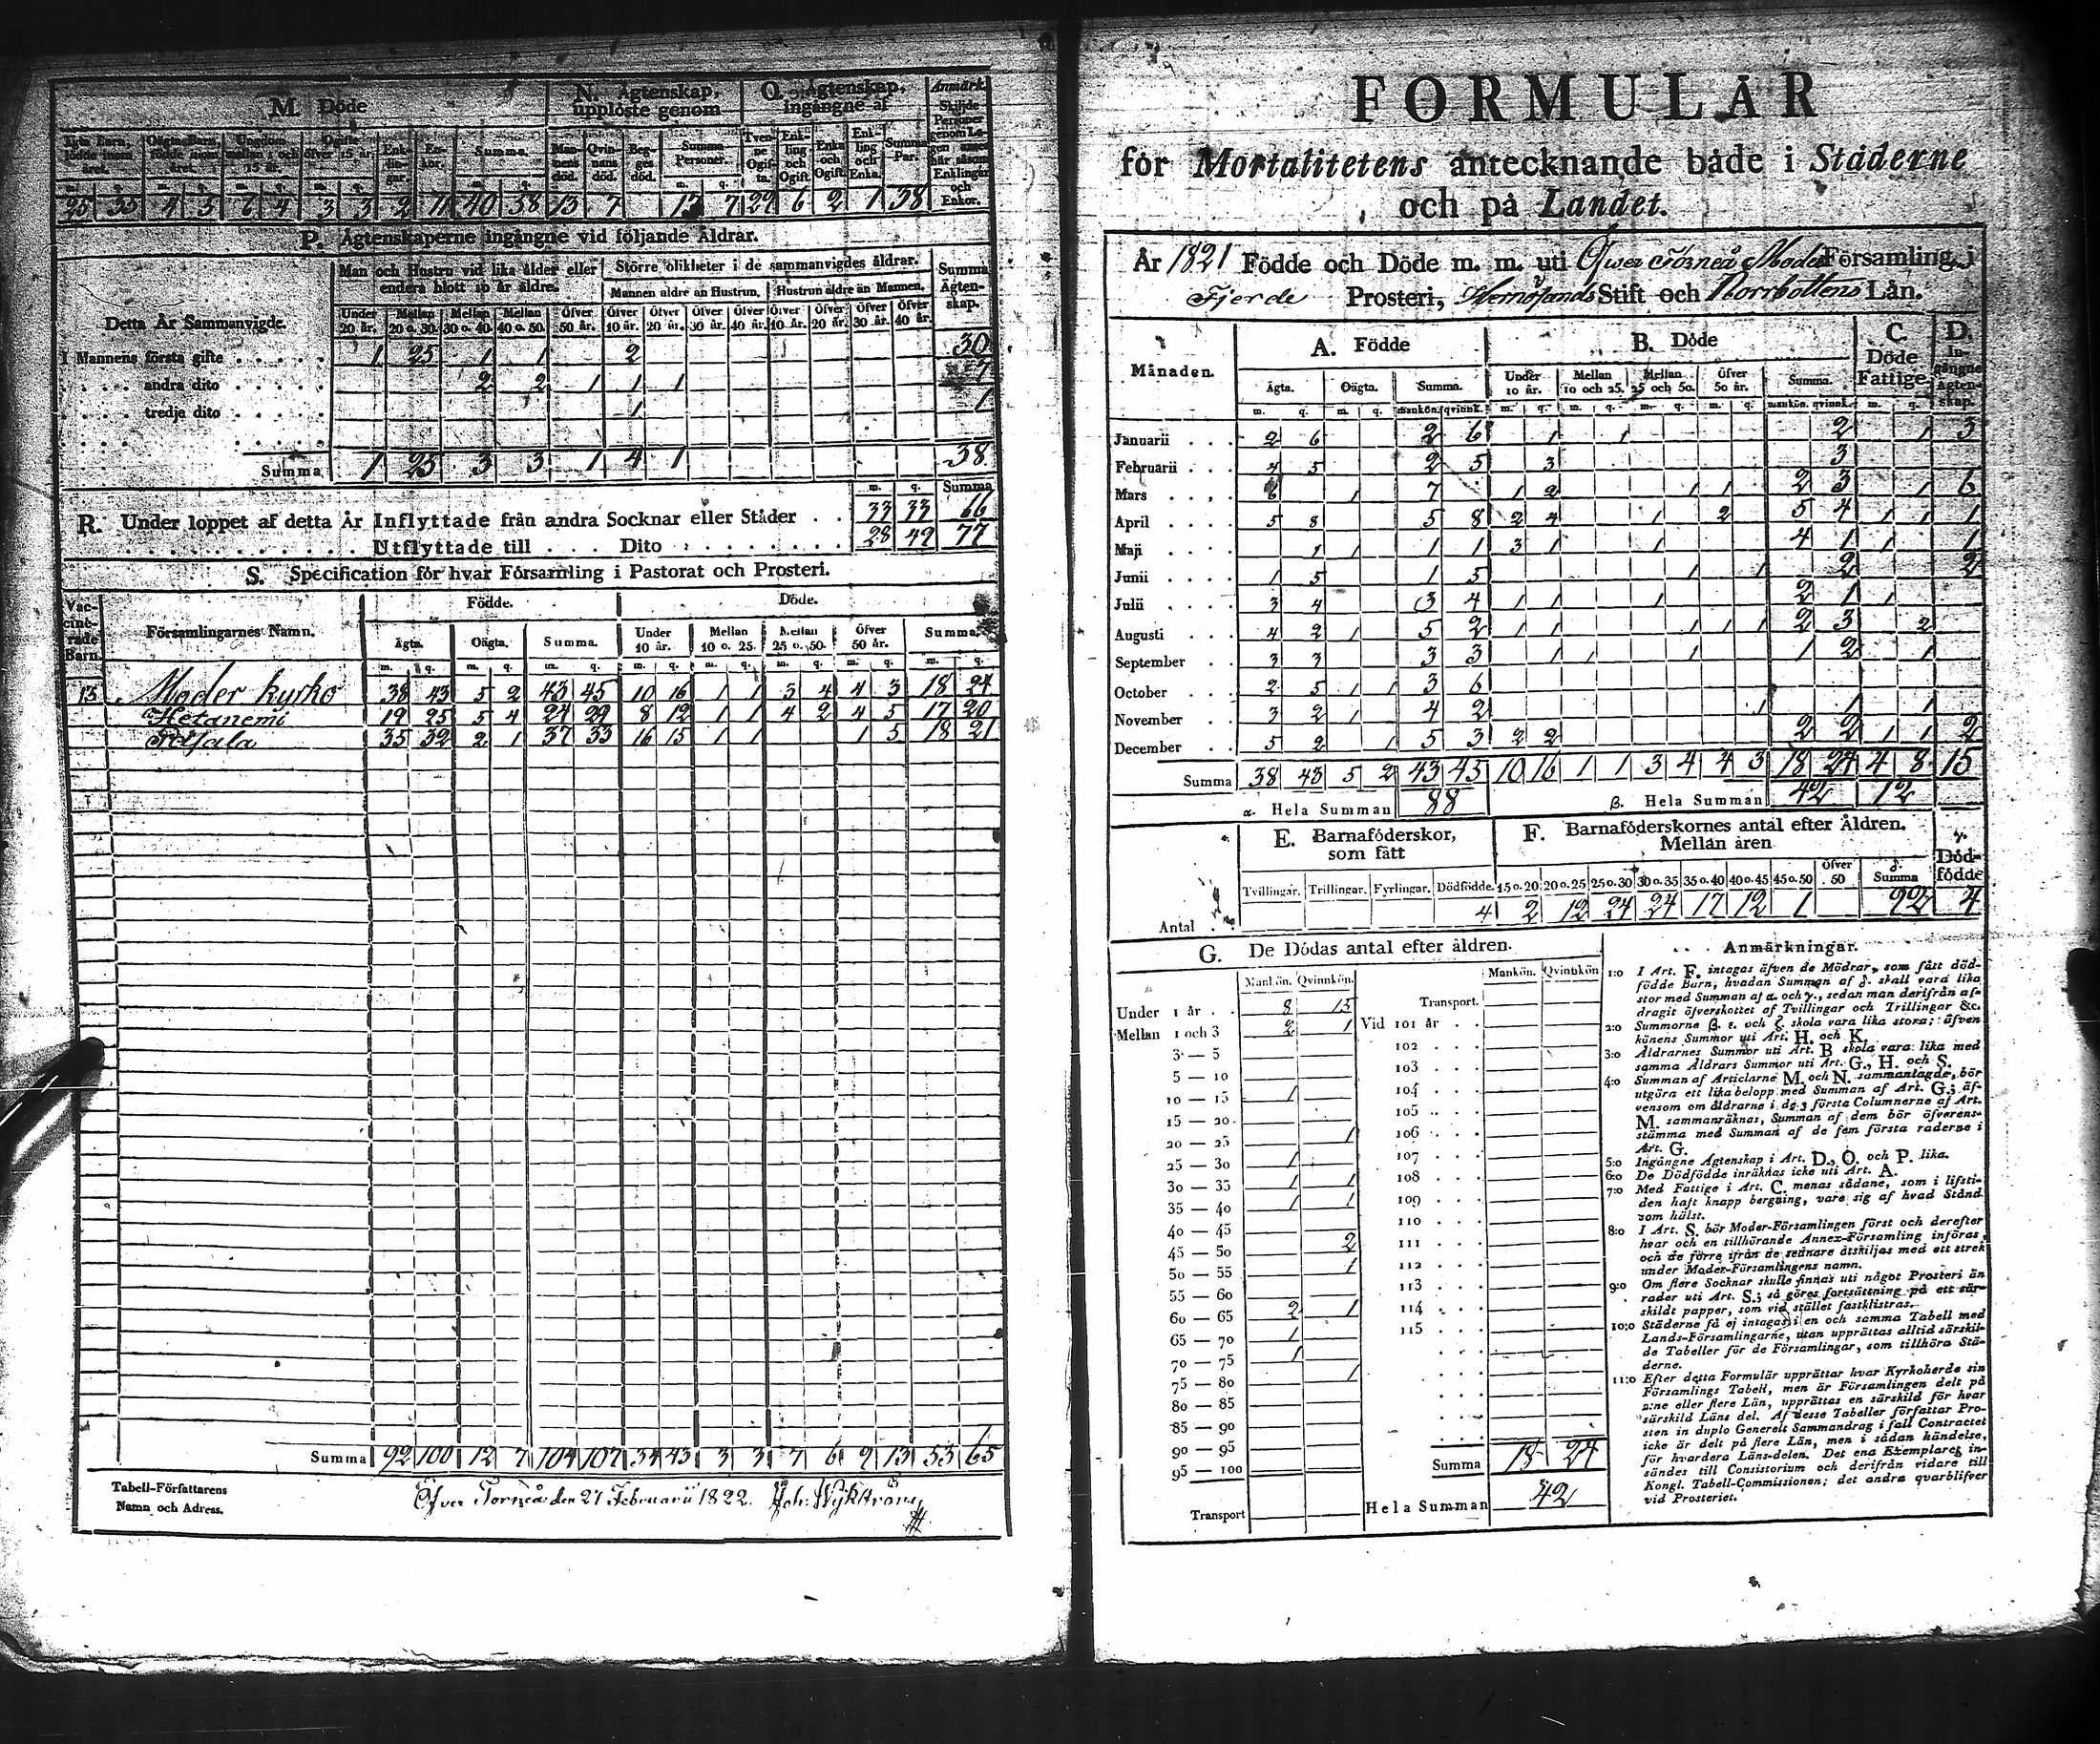 M. Döde
N. Ägtenskap, upplöste genom
O. Ägtenskap, ingångne af
Anmärk.
Ägta Barn, födde inom året.
Oägta Barn, födde inom året.
Ungdom mellan 1 och 15 år.
Ogifte öfver 15 år.
Enklingar.
Enkor.
Summa.
Mannens död.
Qvinnans död.
Begges död.
Summa Personer.
Tvenne Ogifta.
Enkling och Ogift.
Enka och Ogift.
Enkling och Enka.
Summa Par.
Skiljde Personer genom Lagen anses här såsom Enklingar och Enkor.
m. q. m. q. m. q. m. q. m. q. m. q.
25 35 4 5 6 4 3 3 2 11 40 58 13 7 13 7 29 6 2 1 38
P. Ägtenskaperne ingångne vid följande Åldrar.
Detta År Sammanvigde.
Man och Hustru vid lika ålder eller endera blott 10 år äldre.
Större olikheter i de sammanvigdes åldrar.
Mannen äldre än Hustrun. Hustrun äldre än Mannen.
Summa Ägtenskap.
Under 20 år. Mellan 20 o. 30. Mellan 30 o. 40. Mellan 40 o. 50. Öfver 50 år. Öfver 10 år. Öfver 20 år. Öfver 30 år. Öfver 40 år. Öfver 10 år. Öfver 20 år. Öfver 30 år. Öfver 40 år.
I Mannens första gifte . . . . . 1 25 1 1 2 30
. . . . andra dito . . . . . . 2 2 1 1 1 7
. . . . tredje dito . . . . . . 1 1
Summa 1 25 3 3 1 4 1 38
m. q. Summa
R. Under loppet af detta År Inflyttade från andra Socknar eller Städer . . 33 33 66
Utflyttade till . . . . Dito . . . . . . . . 28 49 77
S. Specification för hvar Församling i Pastorat och Prosteri.
Vaccinerade Barn.
Församlingarnes Namn.
Födde. Döde.
Ägta. Oägta. Summa. Under 10 år. Mellan 10 o. 25. Mellan 25 o. 50. Öfver 50 år. Summa.
m. q. m. q. m. q. m. q. m. q. m. q. m. q. m. q.
15 Moder kyrko 38 43 5 2 43 45 10 16 1 1 3 4 4 3 18 24
Hetanemi 19 25 5 4 24 29 8 12 1 1 4 2 4 5 17 20
35 32 2 1 37 33 16 15 1 1 1 5 18 21
Summa 92 100 12 7 104 107 34 43 3 3 7 6 9 13 53 65
Tabell-Författarens Namn och Adress.
Öfver Torneå den 27 Februarii 1822.
FORMULÄR
för Mortalitetens antecknande både i Städerne
och på Landet.
År 1821 Födde och Döde m. m. uti Öfver Torneå Moder Församling i
Fjerde Prosteri, Hernösands Stift och Norrbottens Län.
Månaden.
A. Födde
B. Döde
C. Döde Fattige.
D. Ingångne Ägtenskap.
Ägta. Oägta. Summa. Under 10 år. Mellan 10 och 25. Mellan 25 och 50. Öfver 50 år. Summa.
m. q. m. q. mankön. qvinnk. m. q. m. q. m. q. m. q. mankön. qvinnk. m. q.
Januarii . . . 2 6 2 6 1 1 2 1 3
Februarii . . . 5 2 5 3 3
Mars . . . . 6 1 7 1 2 1 1 2 3 1 6
April . . . . 5 8 5 8 2 4 1 2 5 4 1 1 1
Maji . . . . 1 1 1 1 3 1 1 4 1 1 1
Junii . . . . 1 5 1 5 1 1 2 2
Julii . . . . 3 4 3 4 1 1 1 2 1 1
Augusti . . . 4 2 1 5 2 1 1 1 1 1 2 3 2
September . . 3 3 3 3 1 1 1 1 2 1
October . . . 2 5 1 1 3 6
November . . 3 2 1 4 2 1 1 1
December . . 5 2 1 5 3 2 2 2 2 1 1 2
Summa 38 43 5 2 43 45 10 16 1 1 3 4 4 3 18 24 4 8 15
α. Hela Summan 88 β. Hela Summan 42 12
E. Barnaföderskor, som fått
F. Barnaföderskornes antal efter Åldren. Mellan åren
γ. Dödfödde
Tvillingar. Trillingar. Fyrlingar. Dödfödde. 15 o. 20 20 o. 25 25 o. 30 30 o. 35 35 o. 40 40 o. 45 45 o. 50 Öfver 50 δ. Summa
Antal . . 4 2 12 24 24 17 12 1 92 4
G. De Dödas antal efter åldren.
Mankön. Qvinnkön. Mankön. Qvinnkön
Under 1 år . . 8 15 Transport.
Mellan 1 och 3 2 1 Vid 101 år . .
3 — 5 102 . . .
5 — 10 103 . . .
10 — 15 1 104 . . .
15 — 20 105 . . .
20 — 25 1 106 . . .
25 — 30 1 107 . . .
30 — 35 1 1 108 . . .
35 — 40 1 1 109 . . .
40 — 45 110 . . .
45 — 50 2 111 . . .
50 — 55 1 112 . . .
55 — 60 113 . . .
60 — 65 2 1 114 . . .
65 — 70 1 115 . . .
70 — 75 1
75 — 80 1
80 — 85
85 — 90
90 — 95
95 — 100 Summa 18 24
Transport Hela Summan 42
Anmärkningar.
1:o I Art. F. intagas äfven de Mödrar, som fått dödfödde Barn, hvadan Summan af δ. skall vara lika stor med Summan af α. och γ., sedan man derifrån afdragit öfverskottet af Tvillingar och Trillingar &c.
2:o Summorne β. ε. och ζ. skola vara lika stora; äfven könens Summor uti Art. H. och K.
3:o Åldrarnes Summor uti Art. B skola vara lika med samma Åldrars Summor uti Art. G., H. och S.
4:o Summan af Articlarne M. och N. sammanlagde, bör utgöra ett lika belopp med Summan af Art. G.; äfvensom om åldrarne i de 3 första Columnerne af Art. M. sammanräknas, Summan af dem bör öfverensstämma med Summan af de fem första raderne i Art. G.
5:o Ingångne Ägtenskap i Art. D., O. och P. lika.
6:o De Dödfödde inräknas icke uti Art. A.
7:o Med Fattige i Art. C. menas sådane, som i lifstiden haft knapp bergning, vare sig af hvad Stånd som hälst.
8:o I Art. S. bör Moder-Församlingen först och derefter hvar och en tillhörande Annex-Församling införas, och de förre ifrån de sednare åtskiljas med ett strek under Moder-Församlingens namn.
9:o Om flere Socknar skulle finnas uti något Prosteri än rader uti Art. S.; så göres fortsättning på ett särskildt papper, som vid stället fastklistras.
10:o Städerne få ej intagas i en och samma Tabell med Lands-Församlingarne, utan upprättas alltid särskilde Tabeller för de Församlingar, som tillhöra Städerne.
11:o Efter detta Formulär upprättar hvar Kyrkoherde sin Församlings Tabell, men är Församlingen delt på 2:ne eller flere Län, upprättas en särskild för hvar särskild Läns del. Af desse Tabeller författar Prosten in duplo Generelt Sammandrag i fall Contractet icke är delt på flere Län, men i sådan händelse, för hvardera Läns-delen. Det ena Exemplaret insändes till Consistorium och derifrån vidare till Kongl. Tabell-Commissionen; det andra qvarblifver vid Prosteriet.